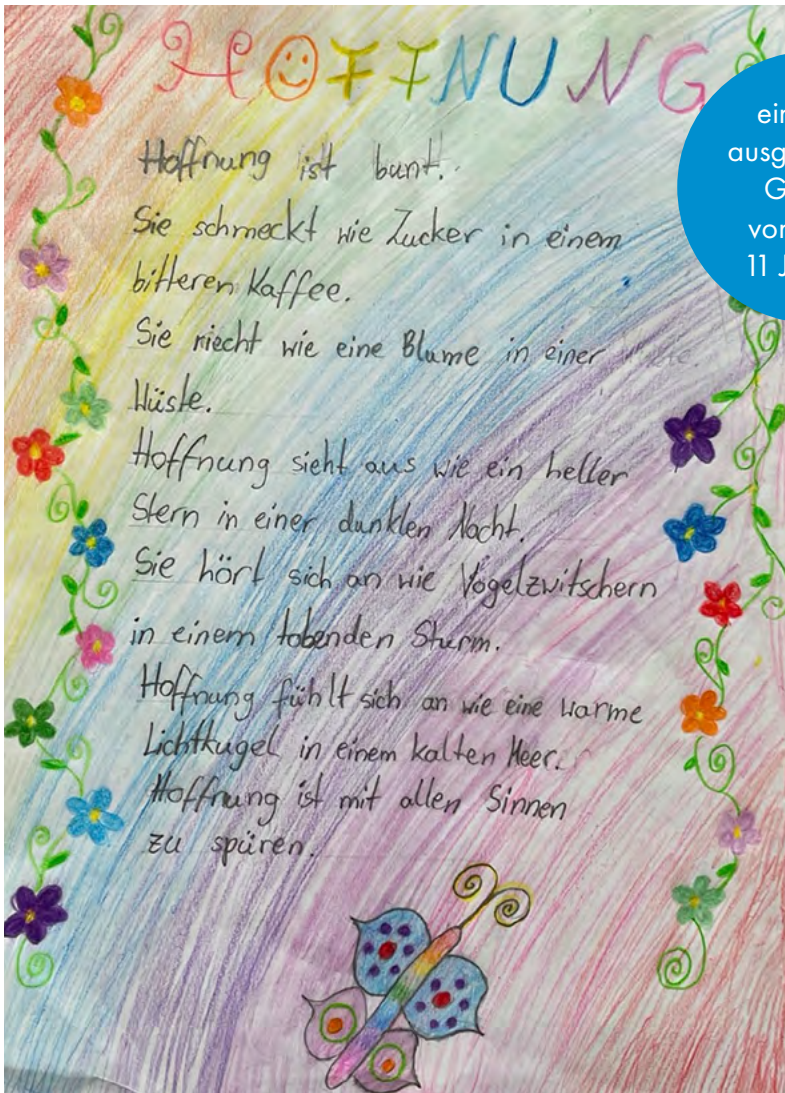 HOFFNUNG
Hoffnung ist bunt.
Sie schmeckt wie Zucker in einem
bitteren Kaffee.
Sie riecht wie eine Blume in einer
Wüste.
Hoffnung sieht aus wie ein heller
Stern in einer dunklen Nacht.
Sie hört sich an wie Vogelzwitschern
in einem tobenden Sturm.
Hoffnung fühlt sich an wie eine warme
Lichtkugel in einem kalten Meer.
Hoffnung ist mit allen Sinnen
zu spüren.
ausg
G
11 J